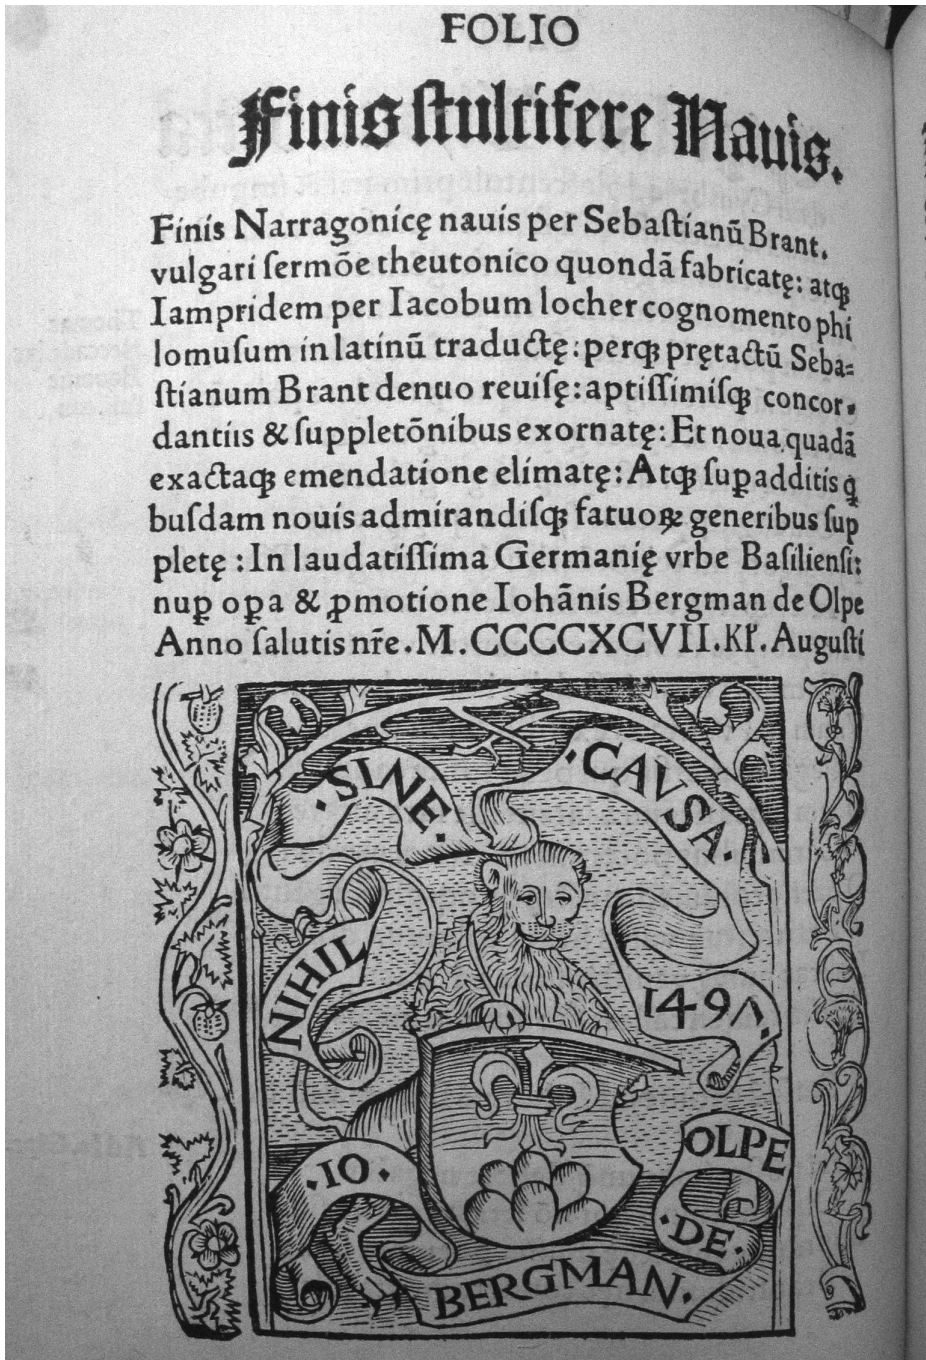 FOLIO
Finis ſtultifere Nauis.
Finis Narragonicę nauis per Sebaſtianū Brant.
vulgari ſermōe theutonico quondā fabricatę: atqꝫ
Iampridem per Iacobum locher cognomento phi
lomuſum in latinū traductę: perqꝫ prętactū Seba⸗
ſtianum Brant denuo reuiſę: aptiſſimiſqꝫ concor⸗
dantiis & ſuppletōnibus exornatę: Et noua quadā
exactaqꝫ emendatione elimatę: Atqꝫ ſuꝑadditis q̄
buſdam nouis admirandiſqꝫ fatuoꝝ generibus ſup
pletę: In laudatiſſima Germanię vrbe Baſilienſi:
nuꝑ oꝑa & ꝓmotione Iohānis Bergman de Olpe
Anno ſalutis nr̄e. M. CCCCXCVII. Kl̓. Auguſti
NIHIL
·SINE·
·CAVSA·
1497.
·IO·
BERGMAN·
·DE·
OLPE